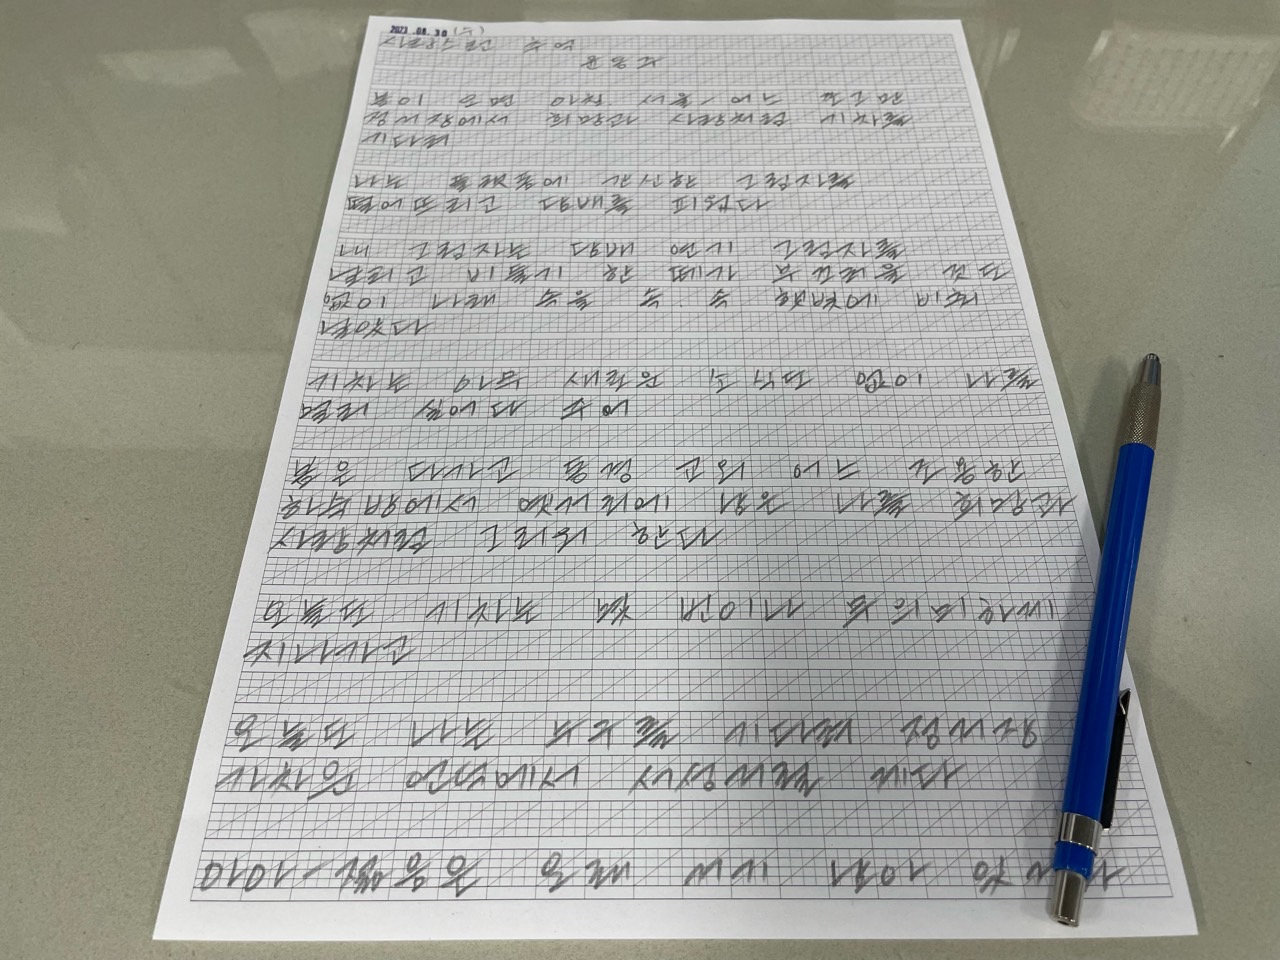 2023.08.30 (수)
사랑스런 추억
윤동주
봄이 오던 아침, 서울 어느 쪼그만
정거장에서 희망과 사랑처럼 기차를
기다려
나는 플랫폼에 간신한 그림자를
떨어뜨리고 담배를 피웠다
내 그림자는 담배 연기 그림자를
날리고 비둘기 한 떼가 부끄러울 것도
없이 나래 속을 속 속 햇빛에 비춰
날았다
기차는 아무 새로운 소식도 없이 나를
멀리 실어다 주어
봄은 다가고 동경 교외 어느 조용한
하숙방에서 옛거리에 남은 나를 희망과
사랑처럼 그리워 한다
오늘도 기차는 몇 번이나 무의미하게
지나가고
오늘도 나는 누구를 기다려 정거장
가차운 언덕에서 서성거릴 게다
아아-젊음은 오래 거기 남아 있거라